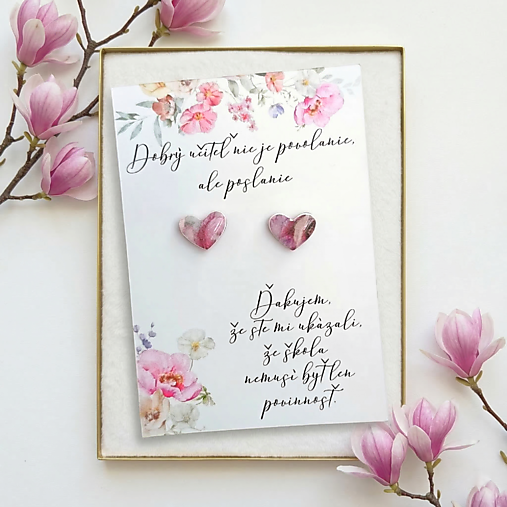 Dobrý učiteľ nie je povolanie,
ale poslanie
Ďakujem,
že ste mi ukàzali,
že škola
nemusì byť len
povinnosť.